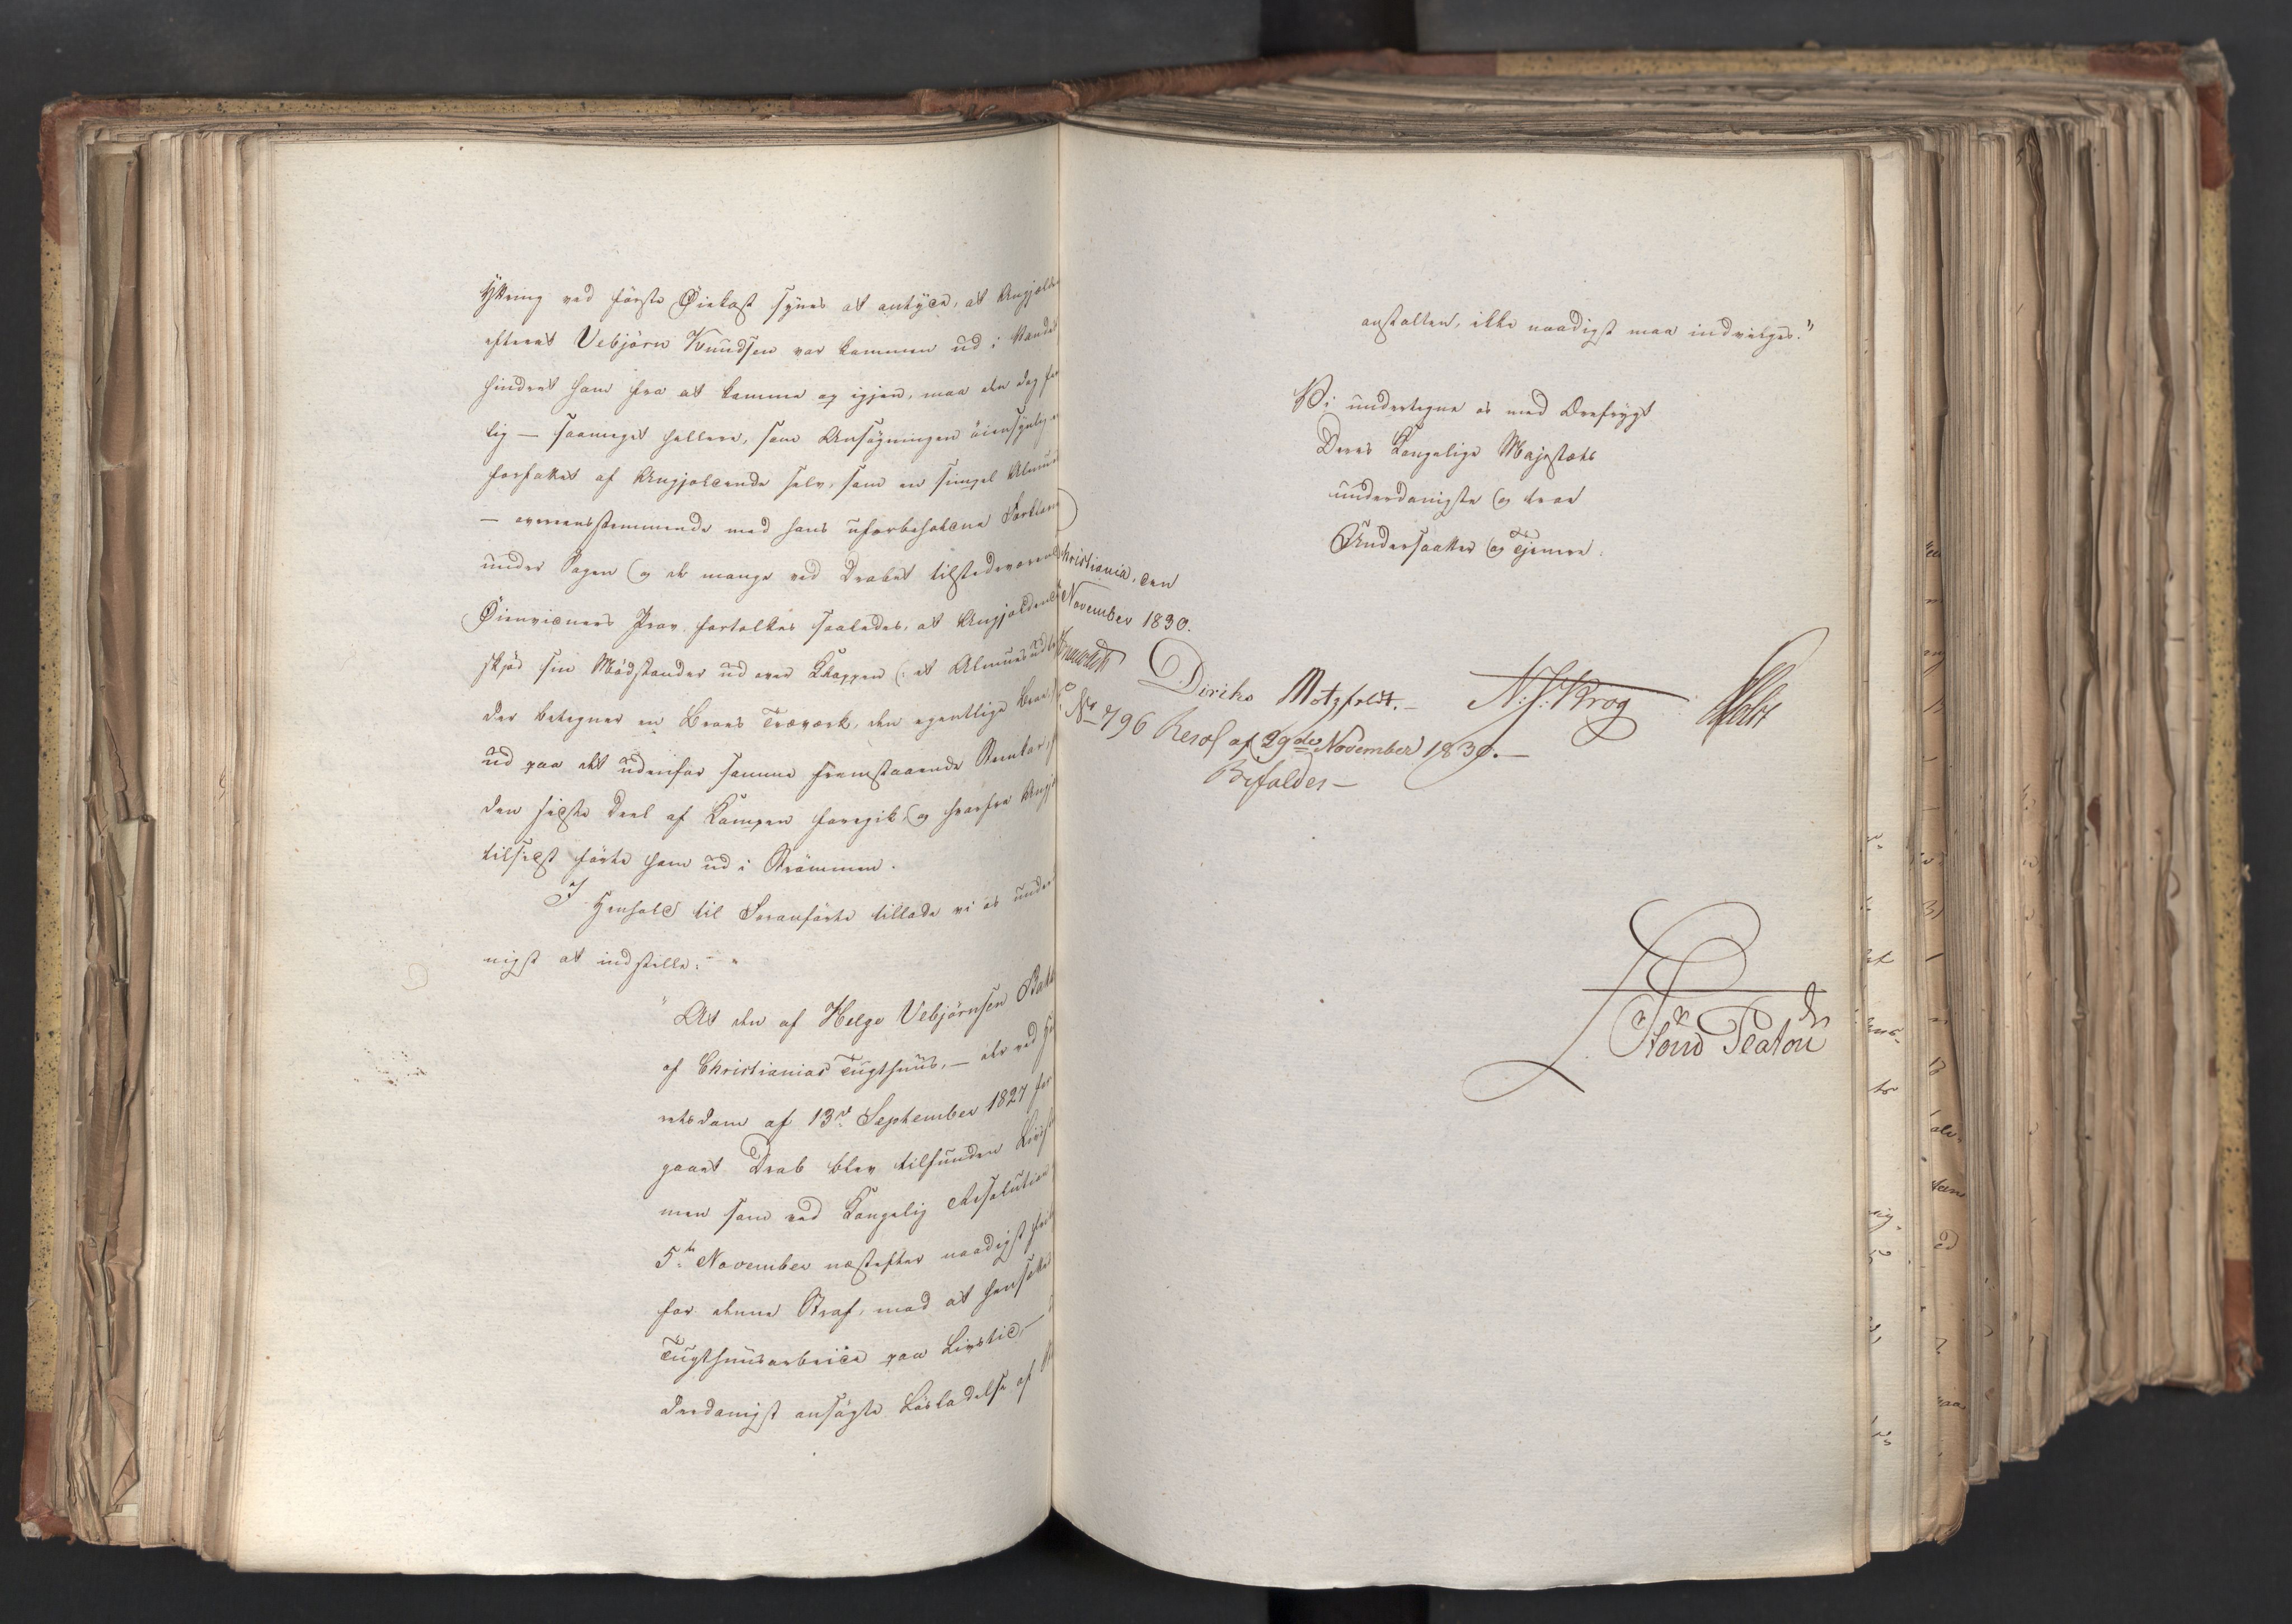 Yttring ved første Øiekast synes at antyde, at Angjælde
efterat Vebjörn Knudsen var kommen ud i Vandet
hindret ham fra at komme op igjen, maa den dog for
lig — saameget hellere, som Ansøgningen øiensynlig er
forfattet af Angjeldende selv, som en simpel Almue
— overensstemmende med hans uforbeholdne Forklar
under Sagen og de mange ved Drabet tilstedeværend
Øienvidners Prov fortolkes saaledes, at Angjeldende
skjød sin Modstander ud over Kloppen (: et Almueud
der betegner en Broes Træværk, den egentlige Broe
ud paa det udenfor samme fremstaaende Steenkar
den sidste Deel af Kampen foregik, og hvorfra Angje
tilsidst førte ham ud i Strømmen.
I Henhold til Foranførte tillade vi os under
nigst at indstille:
"At den af Helge Vebjörnsen Bak
af Christianias Tugthuus, — der ved Hø
retsdom af 13de September 1827 for
gaaet Drab blev tilfunden Livs
men som ved Kongelig Resolution
5te November næstefter naadigst fri
for denne Straf, mod at hensætte
Tugthuusarbeide paa Livstid, —
derdanigst ansøgte Løsladelse af
anstalten, ikke naadigst maa indvilges."
Vi undertegne os med Ærefrygt
Deres Kongelige Majestæts
underdanigste og troe
Undersaatter og Tjenere.
Christiania, den
November 1830.
Diriks Motzfeldt. N. J. Krog Holst
No 796 Resol af 29de November 1830.—
Bifaldes—